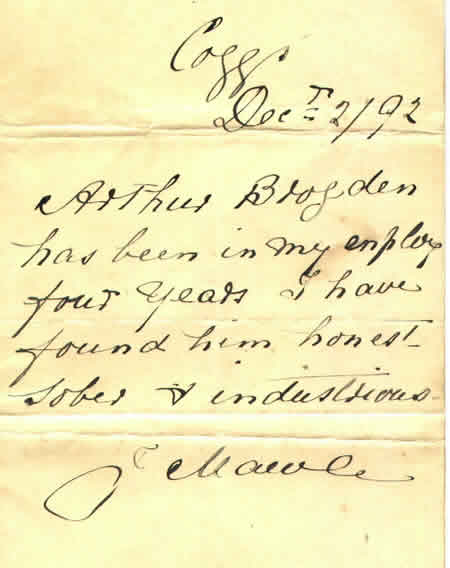 Cogg
Decr 2/92
Arthur Brogden
has been in my employ
four years I have
found him honest
sober & industrious
J Mawle